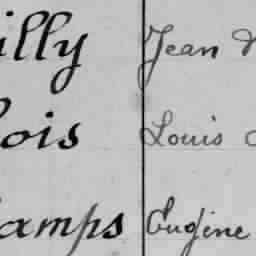 illy Jean
lois Louis
amps Eugène